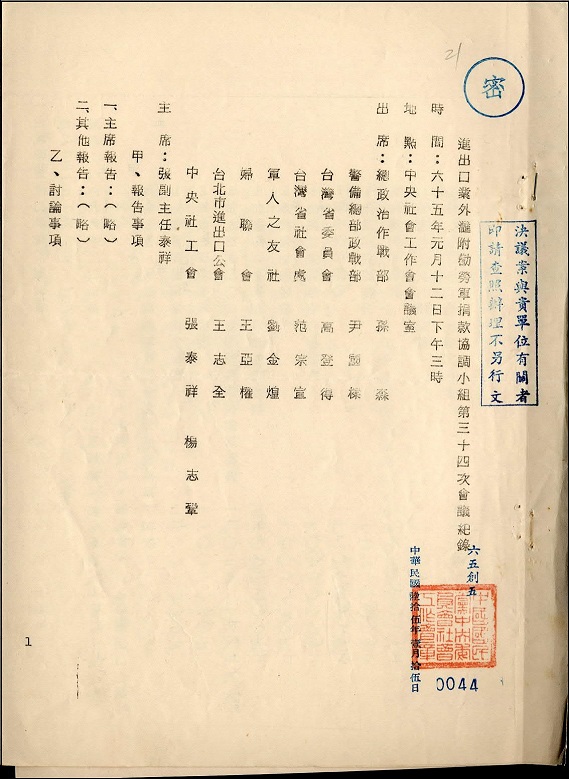 21
密
決議案與貴單位有關者
即請查照辦理不另行文
進出口業外滙附勸勞軍捐款協調小組第三十四次會議紀錄
時間：六十五年元月十二日下午三時
地點：中央社會工作會會議室
出席：總政治作戰部 孫 森
警備總部政戰部 尹 國 樑
台灣省委員會 高 登 得
台灣省社會處 范 宗 宜
軍人之友社 劉 金 煌
婦聯會 王 亞 權
台北市進出口公會 王 志 全
中央社工會 張 泰 祥 楊 志
主席：張副主任泰祥
甲、報告事項
一、主席報告：（略）
二、其他報告：（略）
乙、討論事項
六五創五
中華民國陸拾伍年壹月拾伍日
0044
中國國民黨中央委員會社會工作會章
1